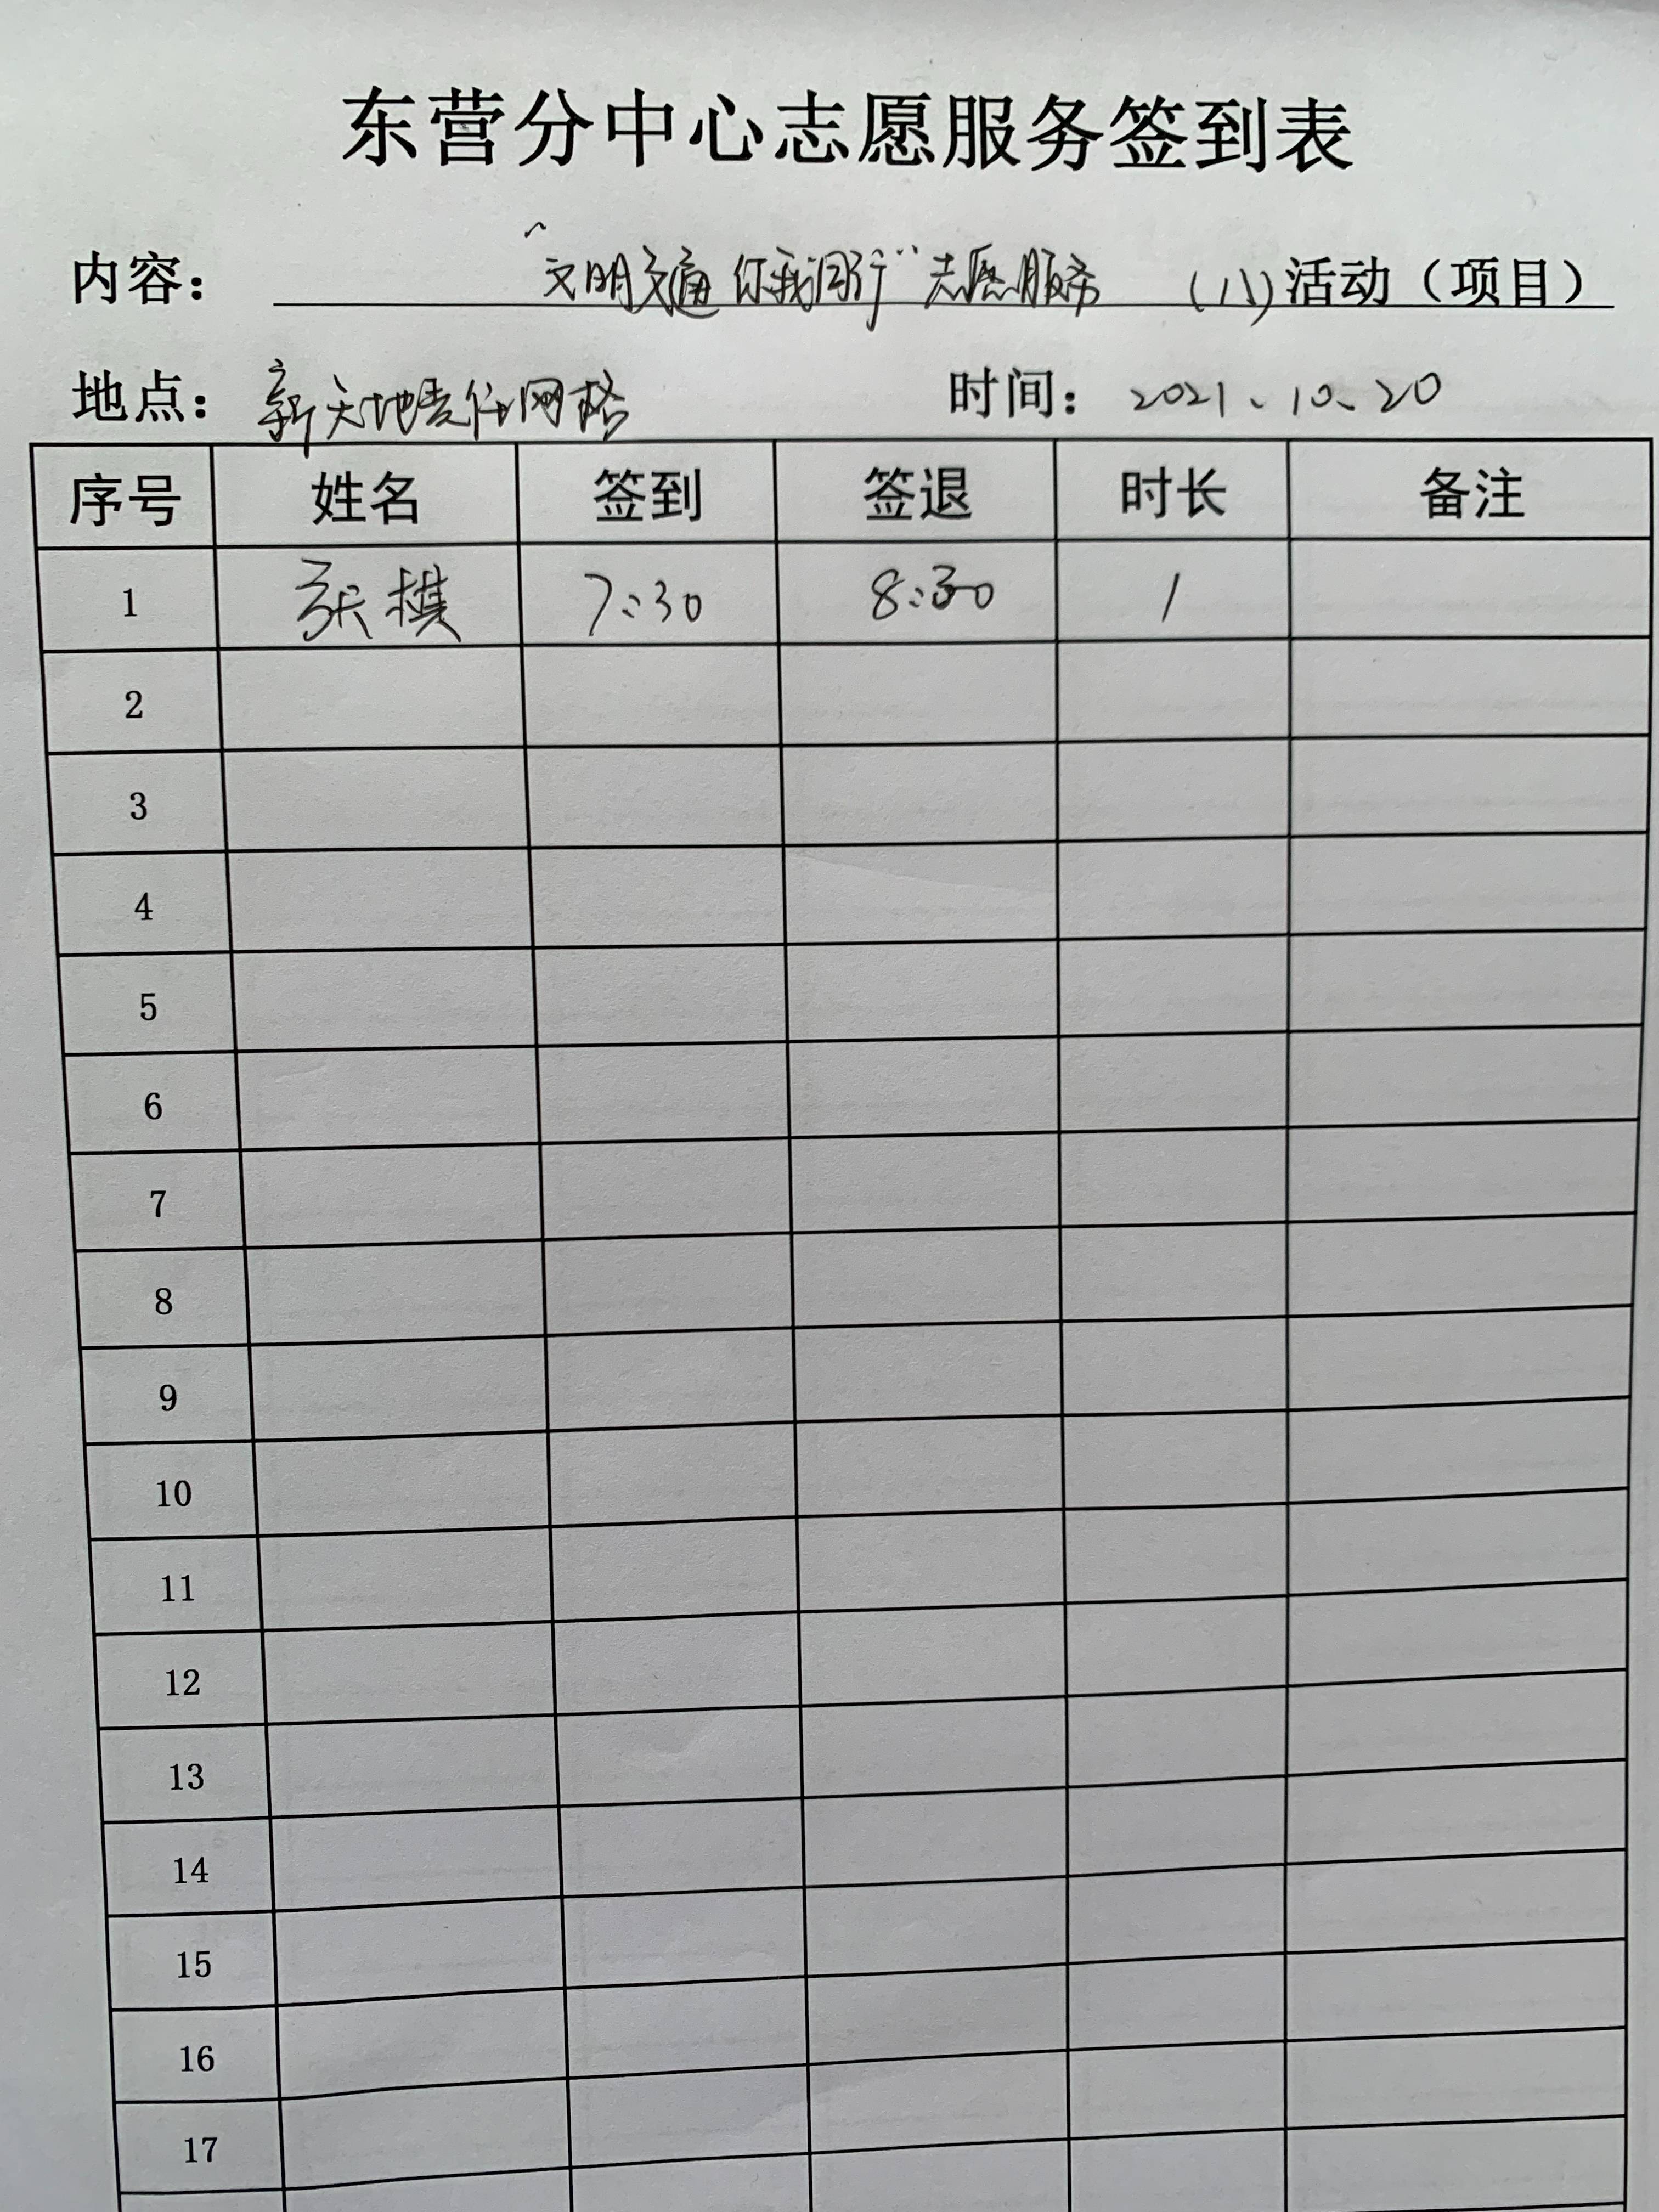 东营分中心志愿服务签到表
内容: “文明交通 你我同行” 志愿服务 (八)活动（项目）
地点: 新天地责任网格 时间: 2021、10、20
序号 姓名 签到 签退 时长 备注
1 张棋 7:30 8:30 1
2
3
4
5
6
7
8
9
10
11
12
13
14
15
16
17